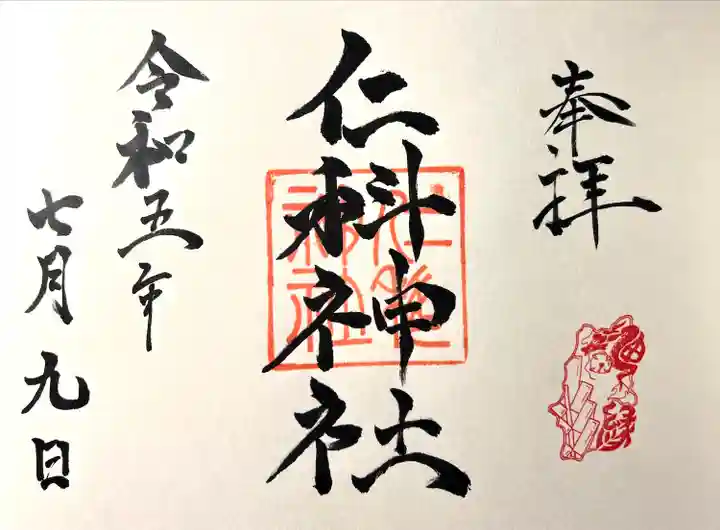 奉拝
仁科神社
令和五年
七月九日